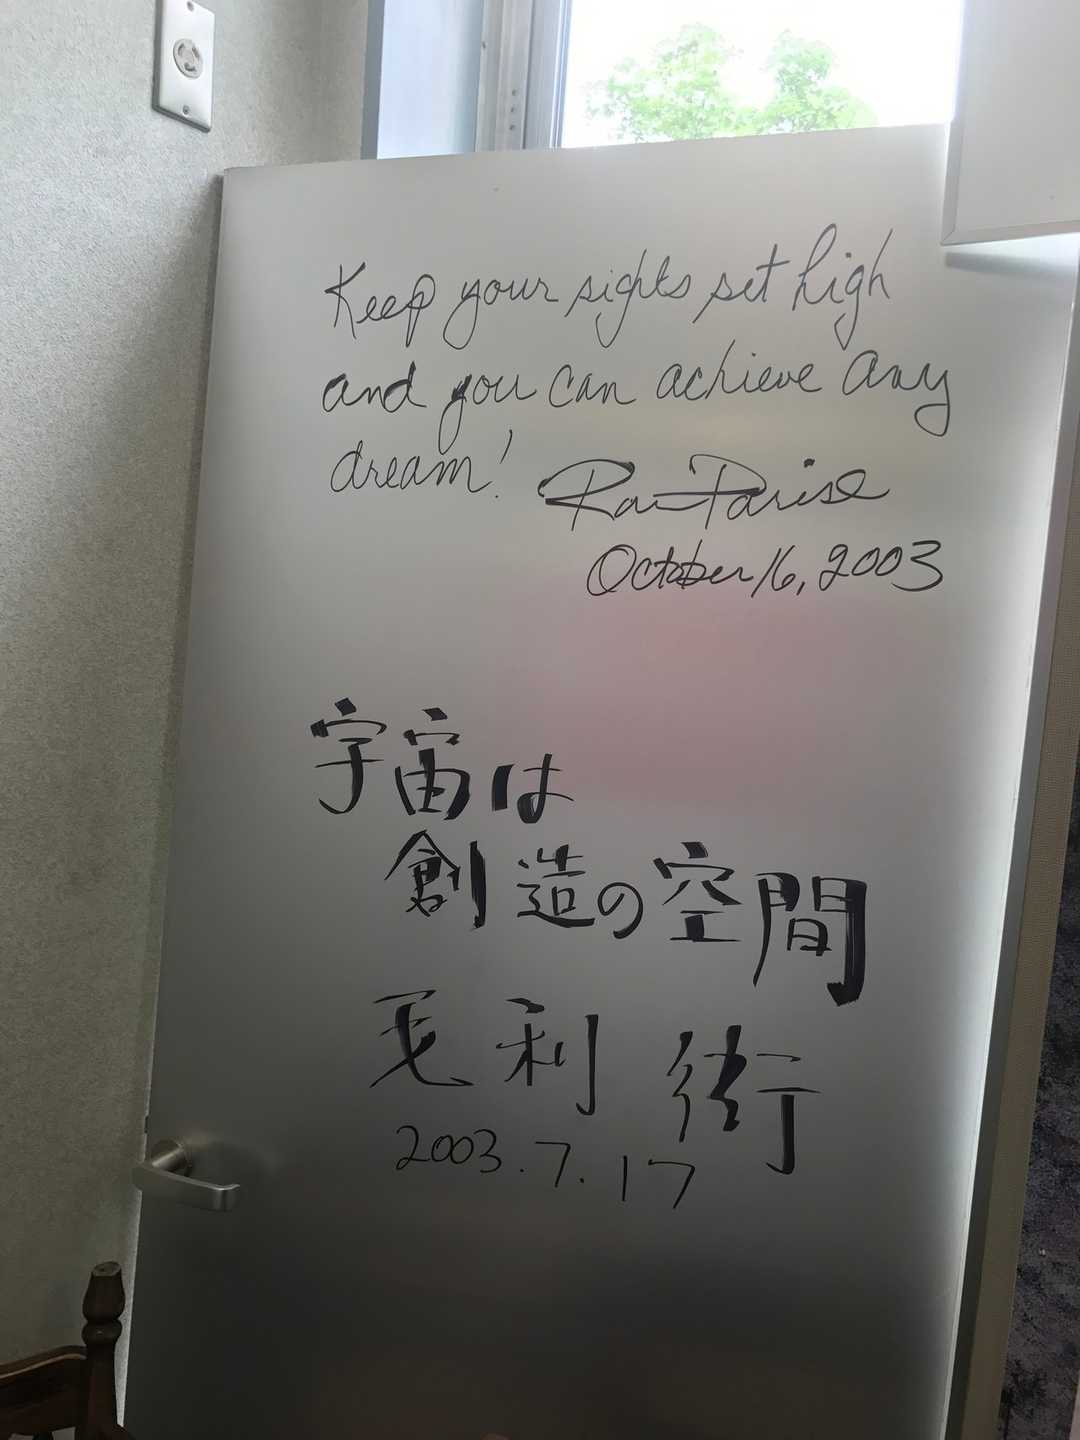 Keep your sights set high
and you can achieve any
dream!
Ron Parise
October 16, 2003
宇宙は
創造の空間
毛利 衛
2003.7.17